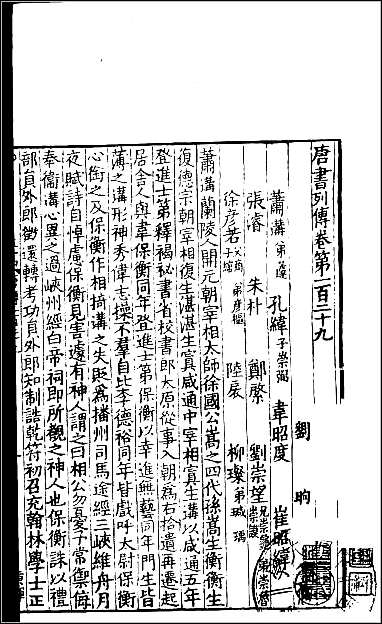 唐書列傳卷第一百二十九
劉昫
蕭遘弟蘧 孔緯子崇弼 韋昭度 崔昭緯
張濬 朱朴 鄭綮 劉崇望兄崇龜 弟崇魯 崇謨
徐彦若父商 弟彦樞 子綰 陸扆 柳璨弟瑊 瑀
蕭遘蘭陵人開元朝宰相太師徐國公嵩之四代孫嵩生衡衡生
復德宗朝宰相復生湛湛生寘咸通中宰相寘生遘以咸通五年
登進士第釋褐秘書省校書郎太原從事入朝為右拾遺再遷起
居舍人與韋保衡同年登進士第保衡以幸進無藝同年門生皆
薄之遘形神秀偉志操不羣自比李德裕同年皆戲呼太尉保衡
心銜之及保衡作相掎遘之失貶為播州司馬途經三峽維舟月
夜賦詩自悼慮保衡見害遽有神人謂之曰相公勿憂予當禦侮
奉衛遘心異之過峽州經白帝祠即所覩之神人也保衡誅以禮
部員外郎徵還轉考功員外郎知制誥乾符初召充翰林學士正